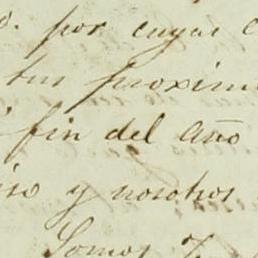 por cuyas
tus proxim
fin del año
y nosotros
Somos